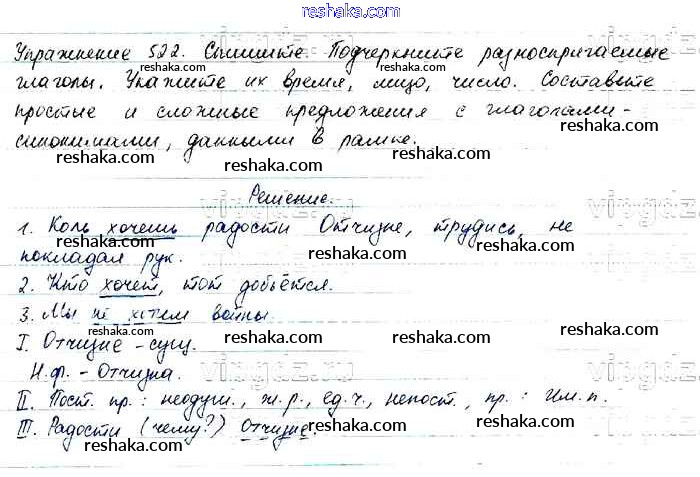 reshaka.com
Упражнение 522. Спишите. Подчеркните разноспрягаемые
глаголы. Укажите их время, лицо, число. Составьте
простые и сложные предложения с глаголами-
синонимами, данными в рамке.
reshaka.com reshaka.com reshaka.com
Решение. vipgdz
1. Коль хочешь радости Отчизне, трудись, не
покладая рук.
reshaka.com reshaka.com reshaka.com
2. Кто хочет, тот добьётся.
3. Мы не хотим войны.
reshaka.com reshaka.com reshaka.com
I. Отчизне - сущ.
Н.ф. - Отчизна.
vipgdz.ru vipgdz
II. Пост. пр.: неодуш., ж.р., ед.ч., непост., пр.: Им.п.
III. Радости (чему?) Отчизне.
reshaka.com reshaka.com reshaka.com